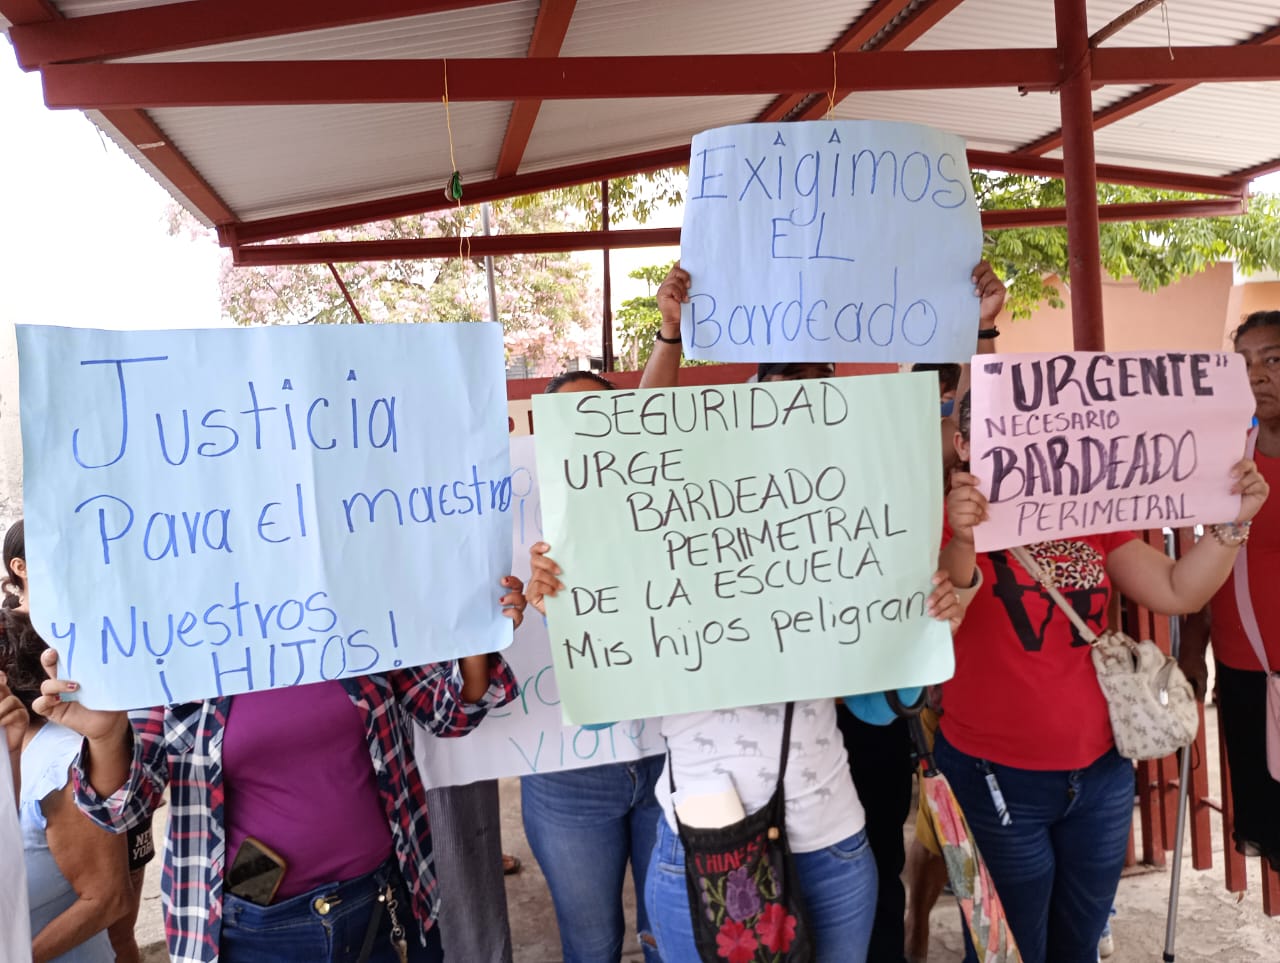 Exigimos
EL
Bardeado
Justicia
Para el maestro
y Nuestros
¡HIJOS!
SEGURIDAD
URGE
BARDEADO
PERIMETRAL
DE LA ESCUELA
Mis hijos peligran
"URGENTE"
NECESARIO
BARDEADO
PERIMETRAL
NEW
YORK